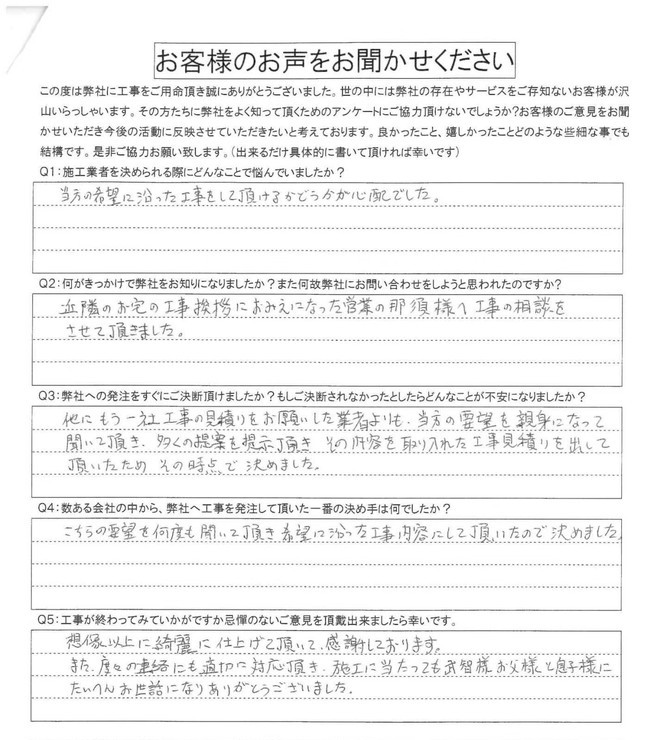 お客様のお声をお聞かせください
この度は弊社に工事をご用命頂き誠にありがとうございました。世の中には弊社の存在やサービスをご存知ないお客様が沢
山いらっしゃいます。その方たちに弊社をよく知って頂くためのアンケートにご協力頂けないでしょうか?お客様のご意見をお聞
かせいただき今後の活動に反映させていただきたいと考えております。良かったこと、嬉しかったことどのような些細な事でも
結構です。是非ご協力お願い致します。(出来るだけ具体的に書いて頂ければ幸いです)
Q1:施工業者を決められる際にどんなことで悩んでいましたか?
当方の希望に沿った工事をして頂けるかどうかが心配でした。
Q2:何がきっかけで弊社をお知りになりましたか?また何故弊社にお問い合わせをしようと思われたのですか?
近隣のお宅の工事挨拶におみえになった営業の那須様へ工事の相談を
させて頂きました。
Q3:弊社への発注をすぐにご決断頂けましたか?もしご決断されなかったとしたらどんなことが不安になりましたか?
他にもう一社工事の見積りをお願いした業者よりも、当方の要望を親身になって
聞いて頂き、多くの提案を提示頂き その内容を取り入れた工事見積りを出して
頂いたため その時点で決めました。
Q4:数ある会社の中から、弊社へ工事を発注して頂いた一番の決め手は何でしたか?
こちらの要望を何度も聞いて頂き希望に沿った工事内容にして頂いたので決めました。
Q5:工事が終わってみていかがですか忌憚のないご意見を頂戴出来ましたら幸いです。
想像以上に綺麗に仕上げて頂いて、感謝しております。
また、度々の連絡にも適切に対応頂き、施工に当たっても武智様お父様と息子様に
たいへんお世話になりありがとうございました。